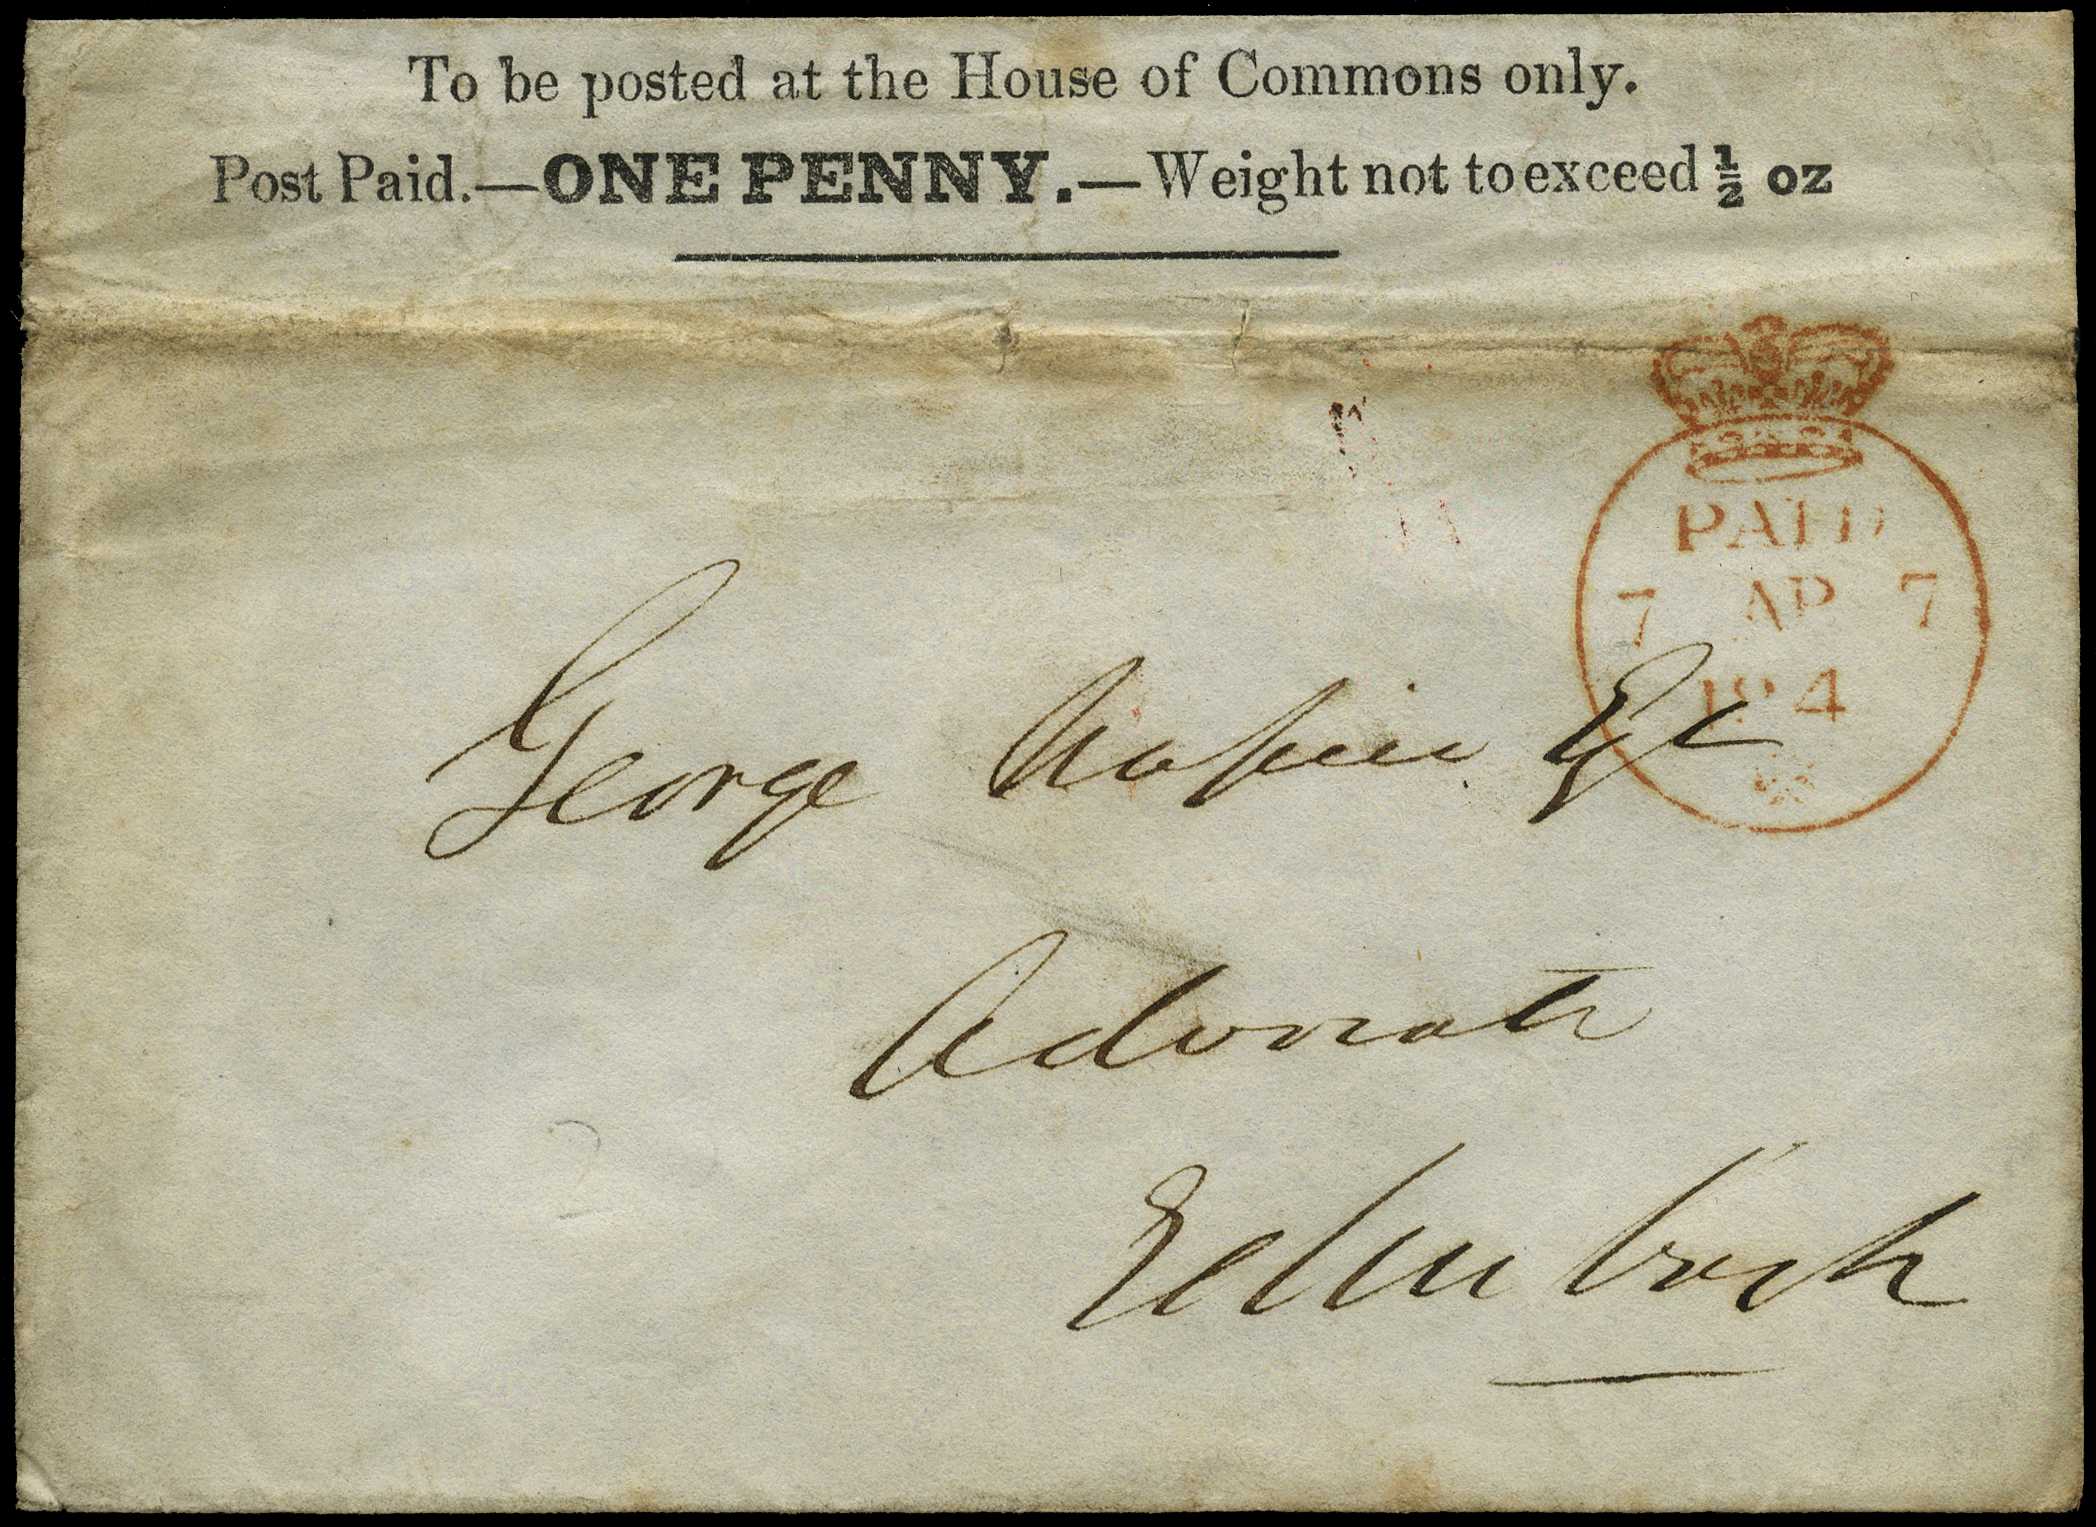 To be posted at the House of Commons only.
Post Paid.—ONE PENNY.—Weight not to exceed ½ oz
PAID
7 AP 7
184
George Napier Esqr
Advocate
Edinburgh